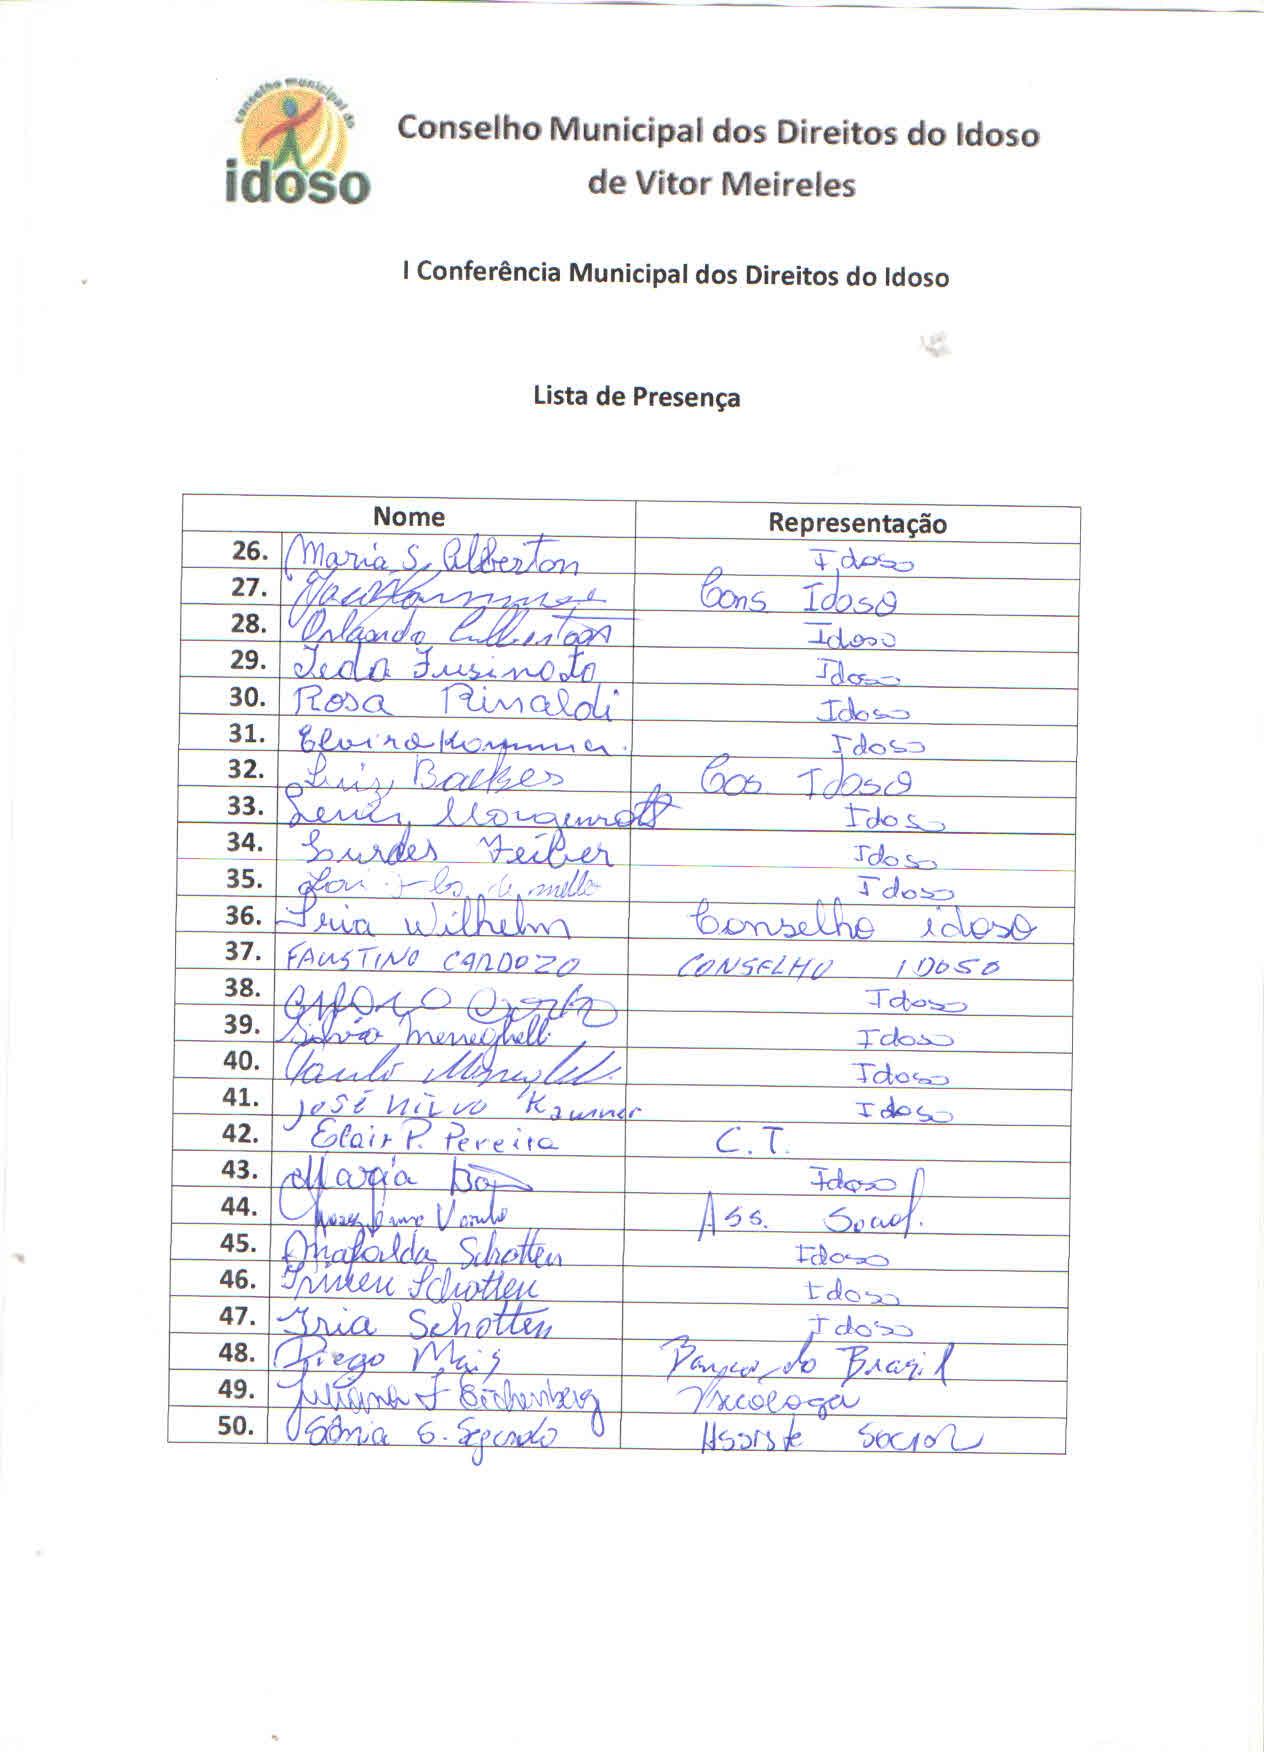 conselho municipal do
idoso
Conselho Municipal dos Direitos do Idoso
de Vitor Meireles
I Conferência Municipal dos Direitos do Idoso
Lista de Presença
Nome Representação
26. Maria S. Alberton Idoso
27. Cons Idoso
28. Orlando Alberton Idoso
29. Ieda Fusinato Idoso
30. Rosa Rinaldi Idoso
31. Elvira Idoso
32. Luiz Backes Cos Idoso
33. Morgenrott Idoso
34. Lurdes Feiber Idoso
35. de mello Idoso
36. Wilhelm Conselho idoso
37. FAUSTINO CARDOZO CONSELHO IDOSO
38. Idoso
39. Silvio Meneghelli Idoso
40. Idoso
41. JOSÉ NILVO Kammer Idoso
42. Elair P. Pereira C.T.
43. Maria Idoso
44. Ass. Social.
45. Mafalda Schotten Idoso
46. Irineu Schotten Idoso
47. Iria Schotten Idoso
48. Diego Mais Banco do Brasil
49. Juliana Psicologa
50. Sônia G. Segundo Assiste Social